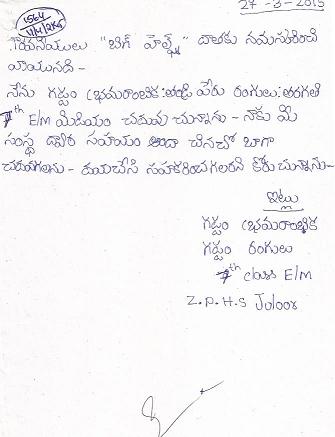 27-3-2015
1564
11/4/2015
గౌరవనీయులు "బిగ్ హెల్ప్" దాతకు నమస్కరించి
వ్రాయునది -
నేను గడ్డం భ్రమరాంబిక :తండ్రి పేరు రంగులు: తరగతి
7th E/m మీడియం చదువు చున్నాను - నాకు మీ
సంస్థ ద్వార సహాయం అందా చినచో బాగా
చదువగలను - దయచేసి సహకరించగలరని కోరు చున్నాను -
ఇట్లు
గడ్డం భ్రమరాంబిక
గడ్డం రంగులు
7th class E/m
Z.P.H.S Juloor